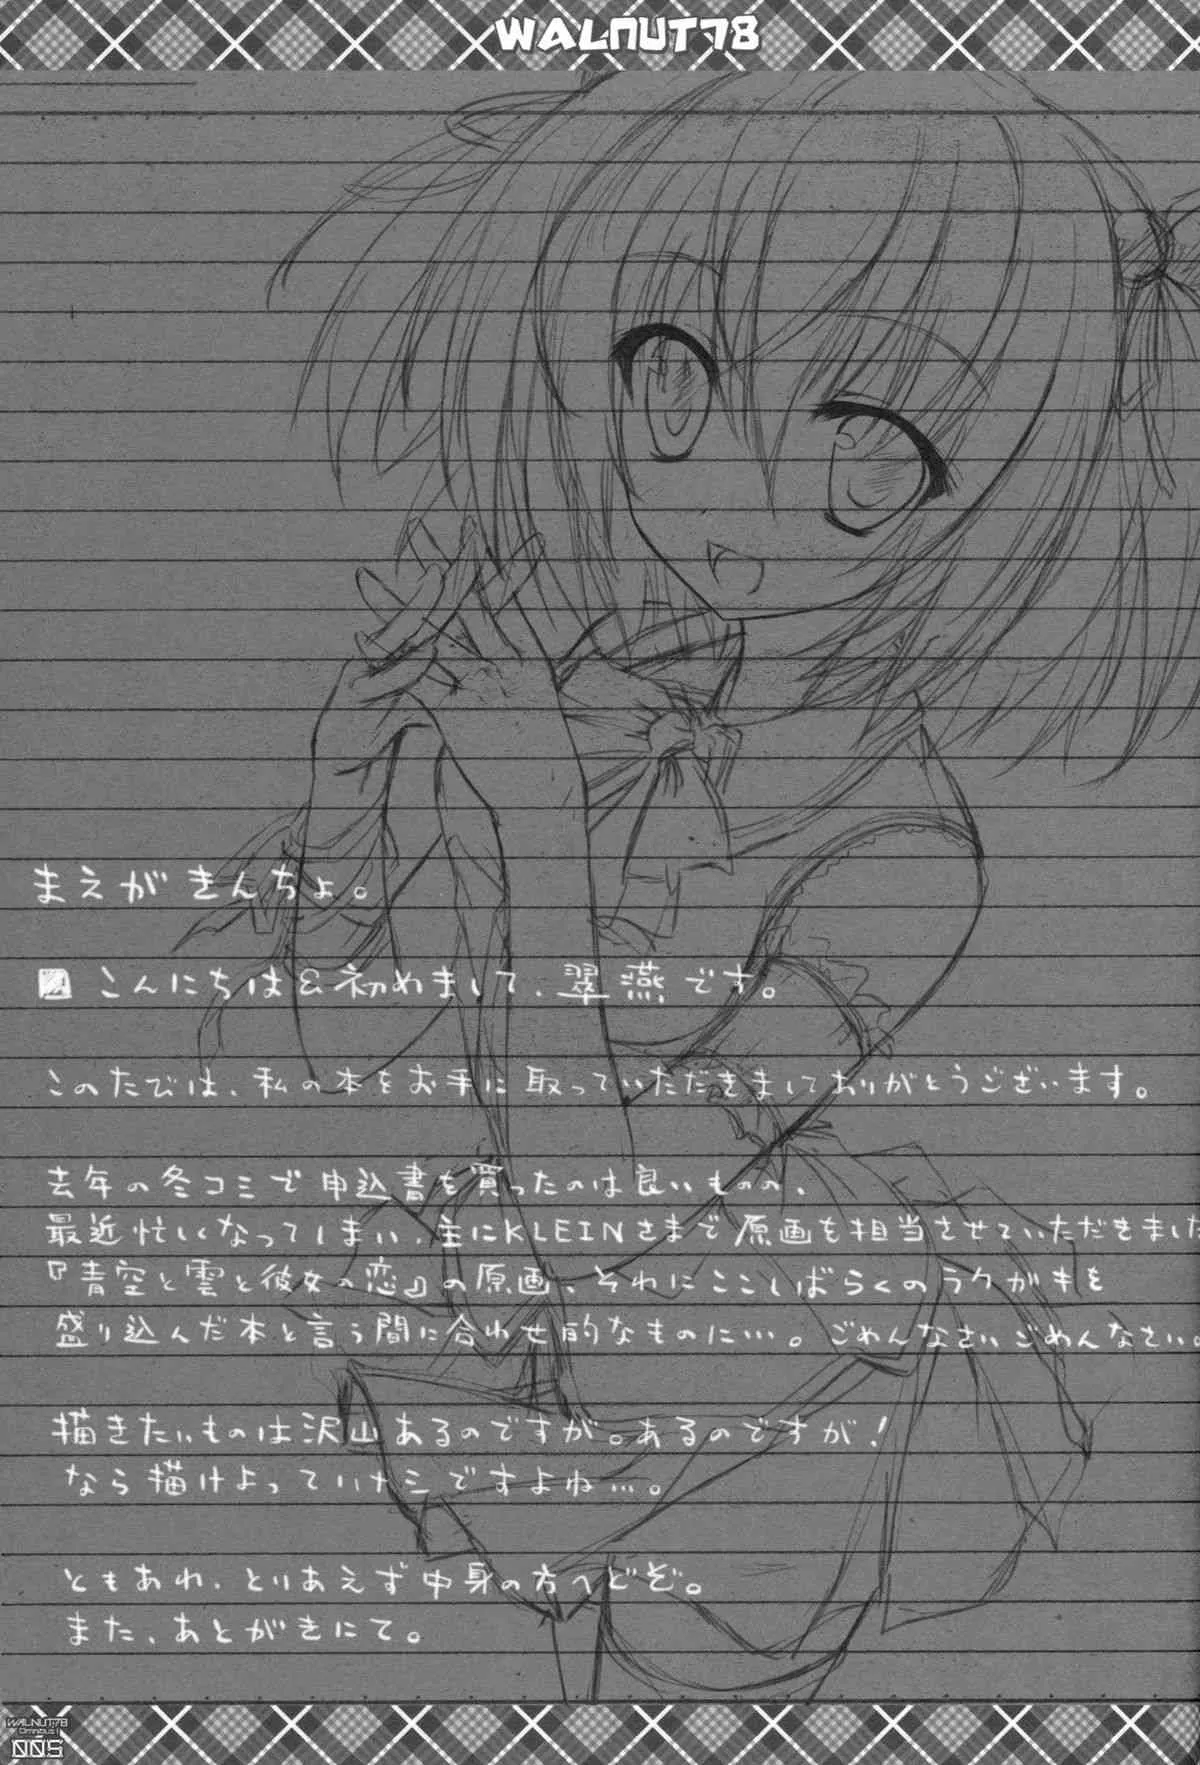 WALNUT78
まえがきんちょ。
こんにちは&初めまして、翠燕です。
このたびは、私の本をお手に取っていただきましてありがとうございます。
去年の冬コミで申込書を買ったのは良いものの、
最近忙しくなってしまい、主にKLEINさまで原画を担当させていただきました
『青空と雲と彼女の恋』の原画、それにここしばらくのラクガキを
盛り込んだ本と言う間に合わせ的なものに…。ごめんなさいごめんなさい。
描きたいものは沢山あるのですが。あるのですが!
なら描けよっていナシですよね…。
ともあれ、とりあえず中身の方へどぞ。
また、あとがきにて。
WALNUT78
Omnibus 1
005